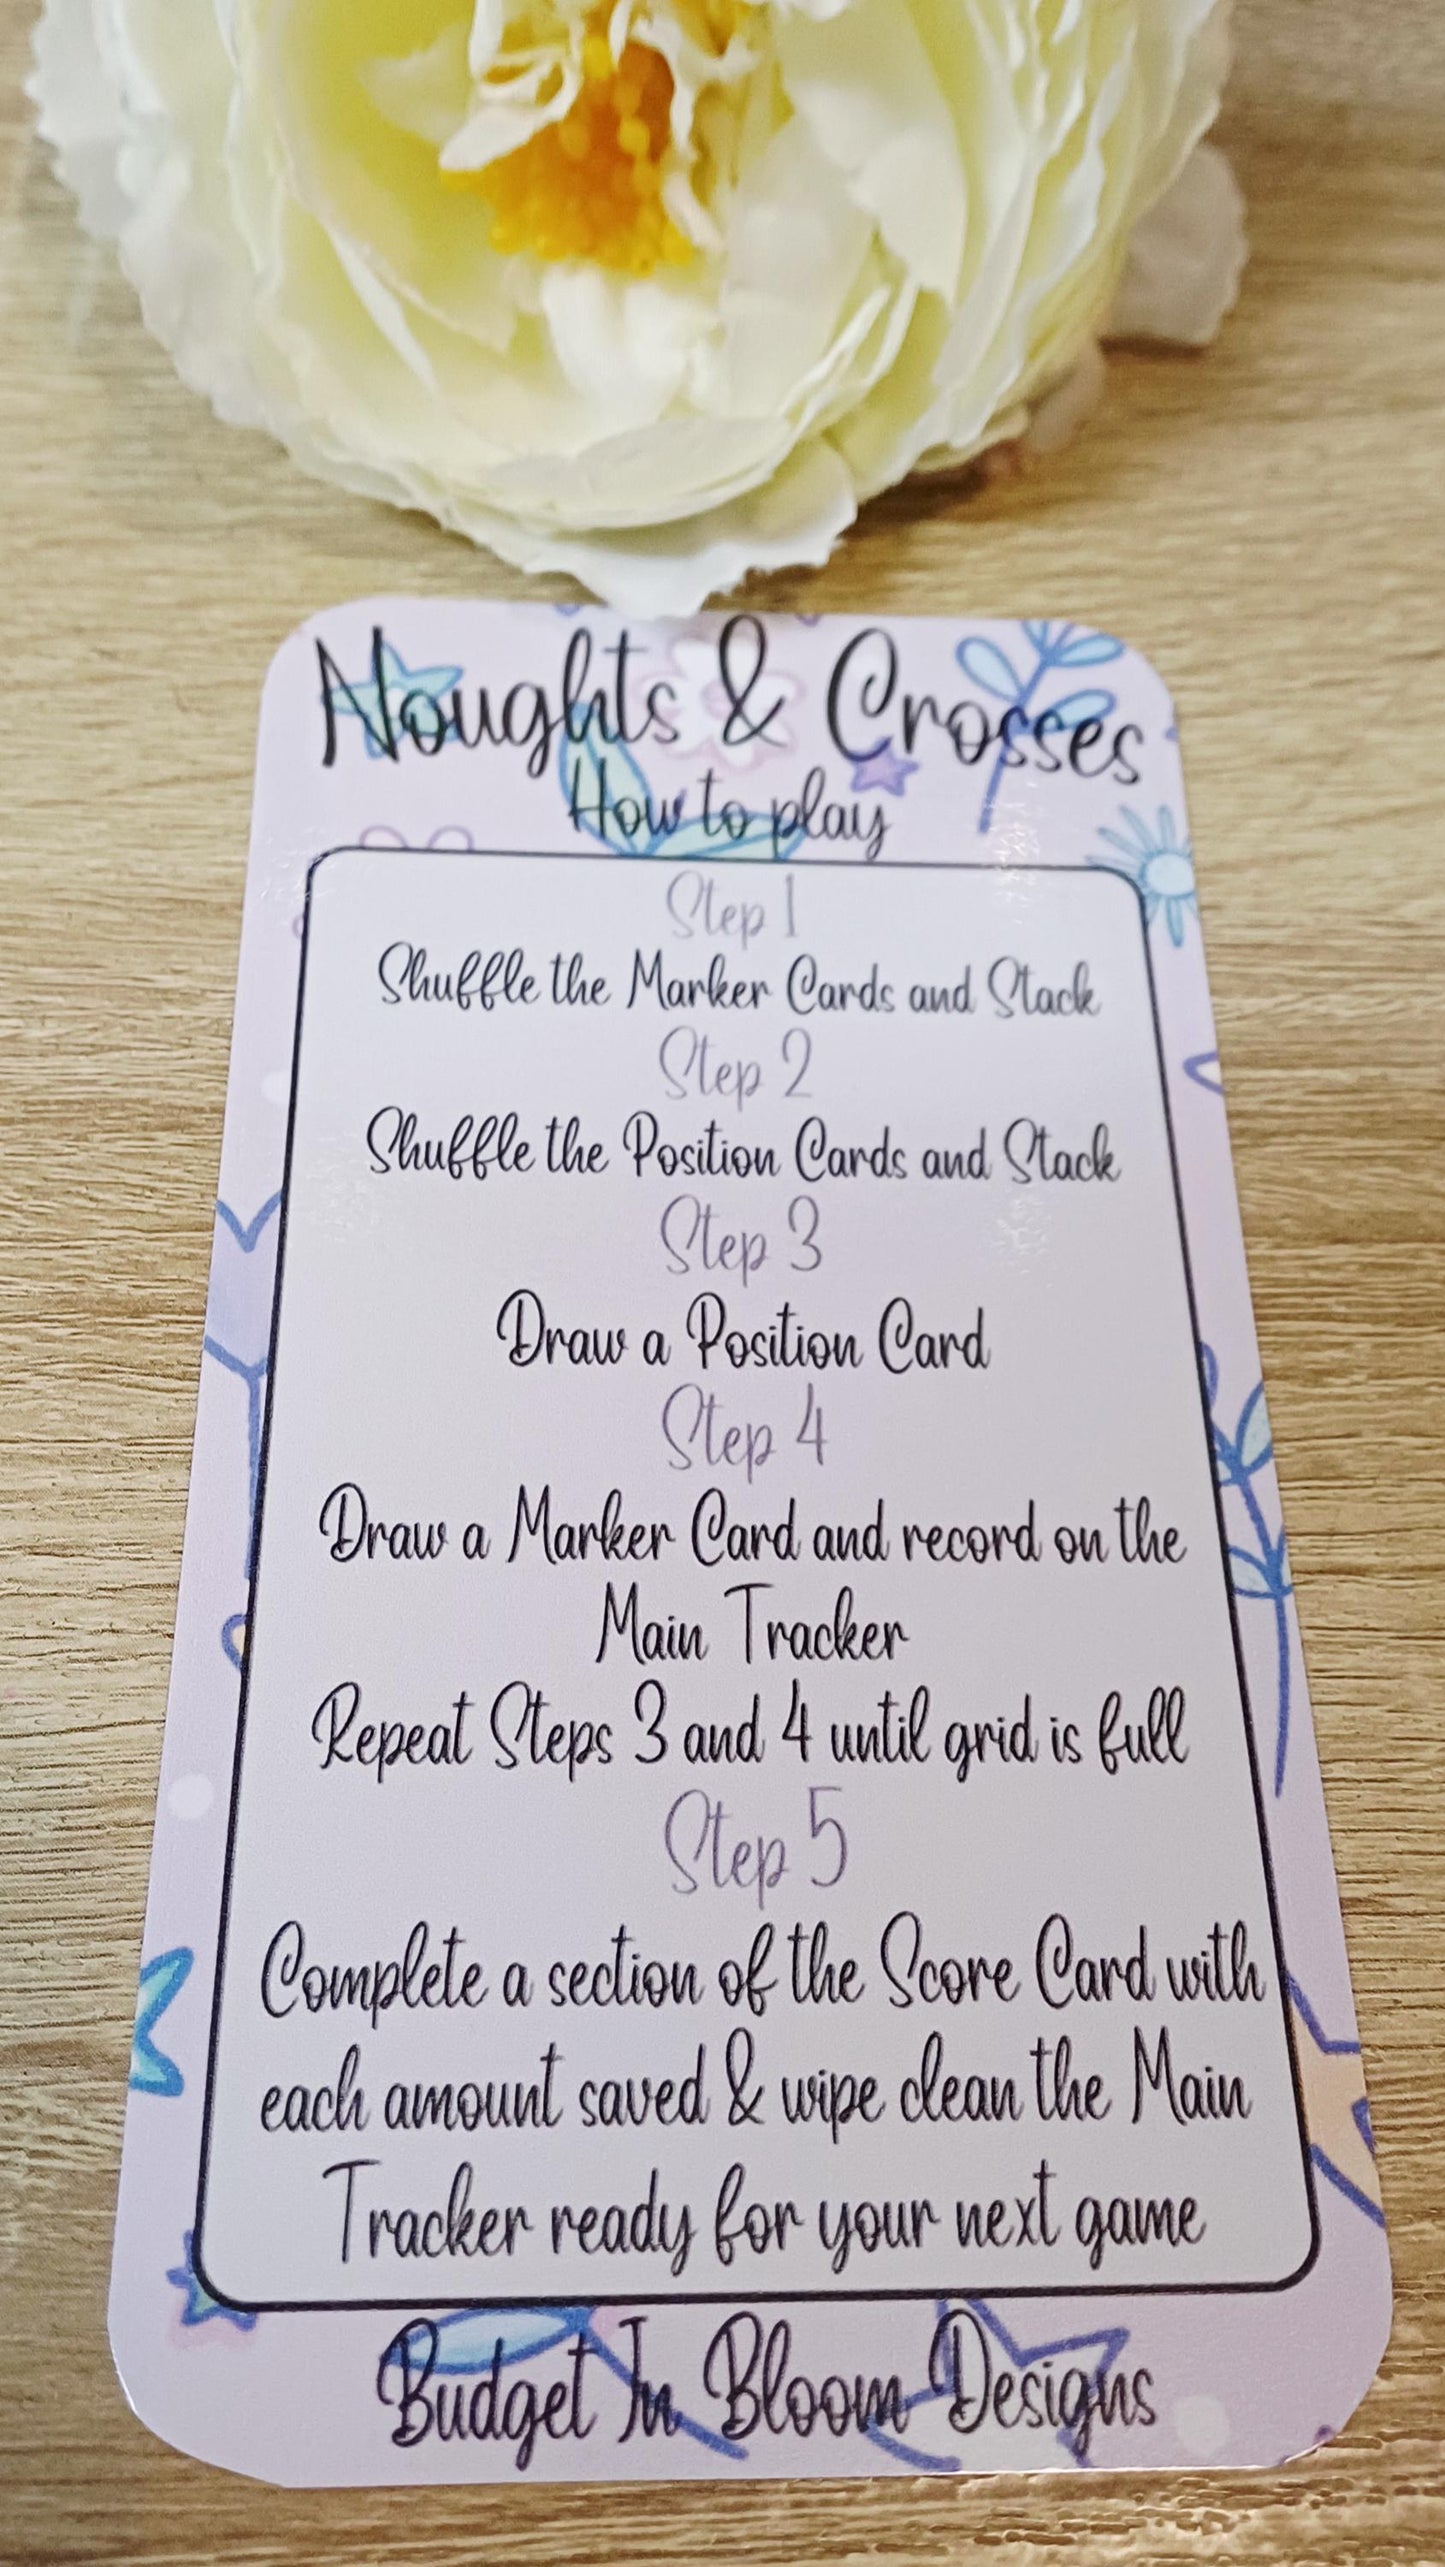 Noughts & Crosses
How to play
Step 1
Shuffle the Marker Cards and Stack
Step 2
Shuffle the Position Cards and Stack
Step 3
Draw a Position Card
Step 4
Draw a Marker Card and record on the
Main Tracker
Repeat Steps 3 and 4 until grid is full
Step 5
Complete a section of the Score Card with
each amount saved & wipe clean the Main
Tracker ready for your next game
Budget In Bloom Designs